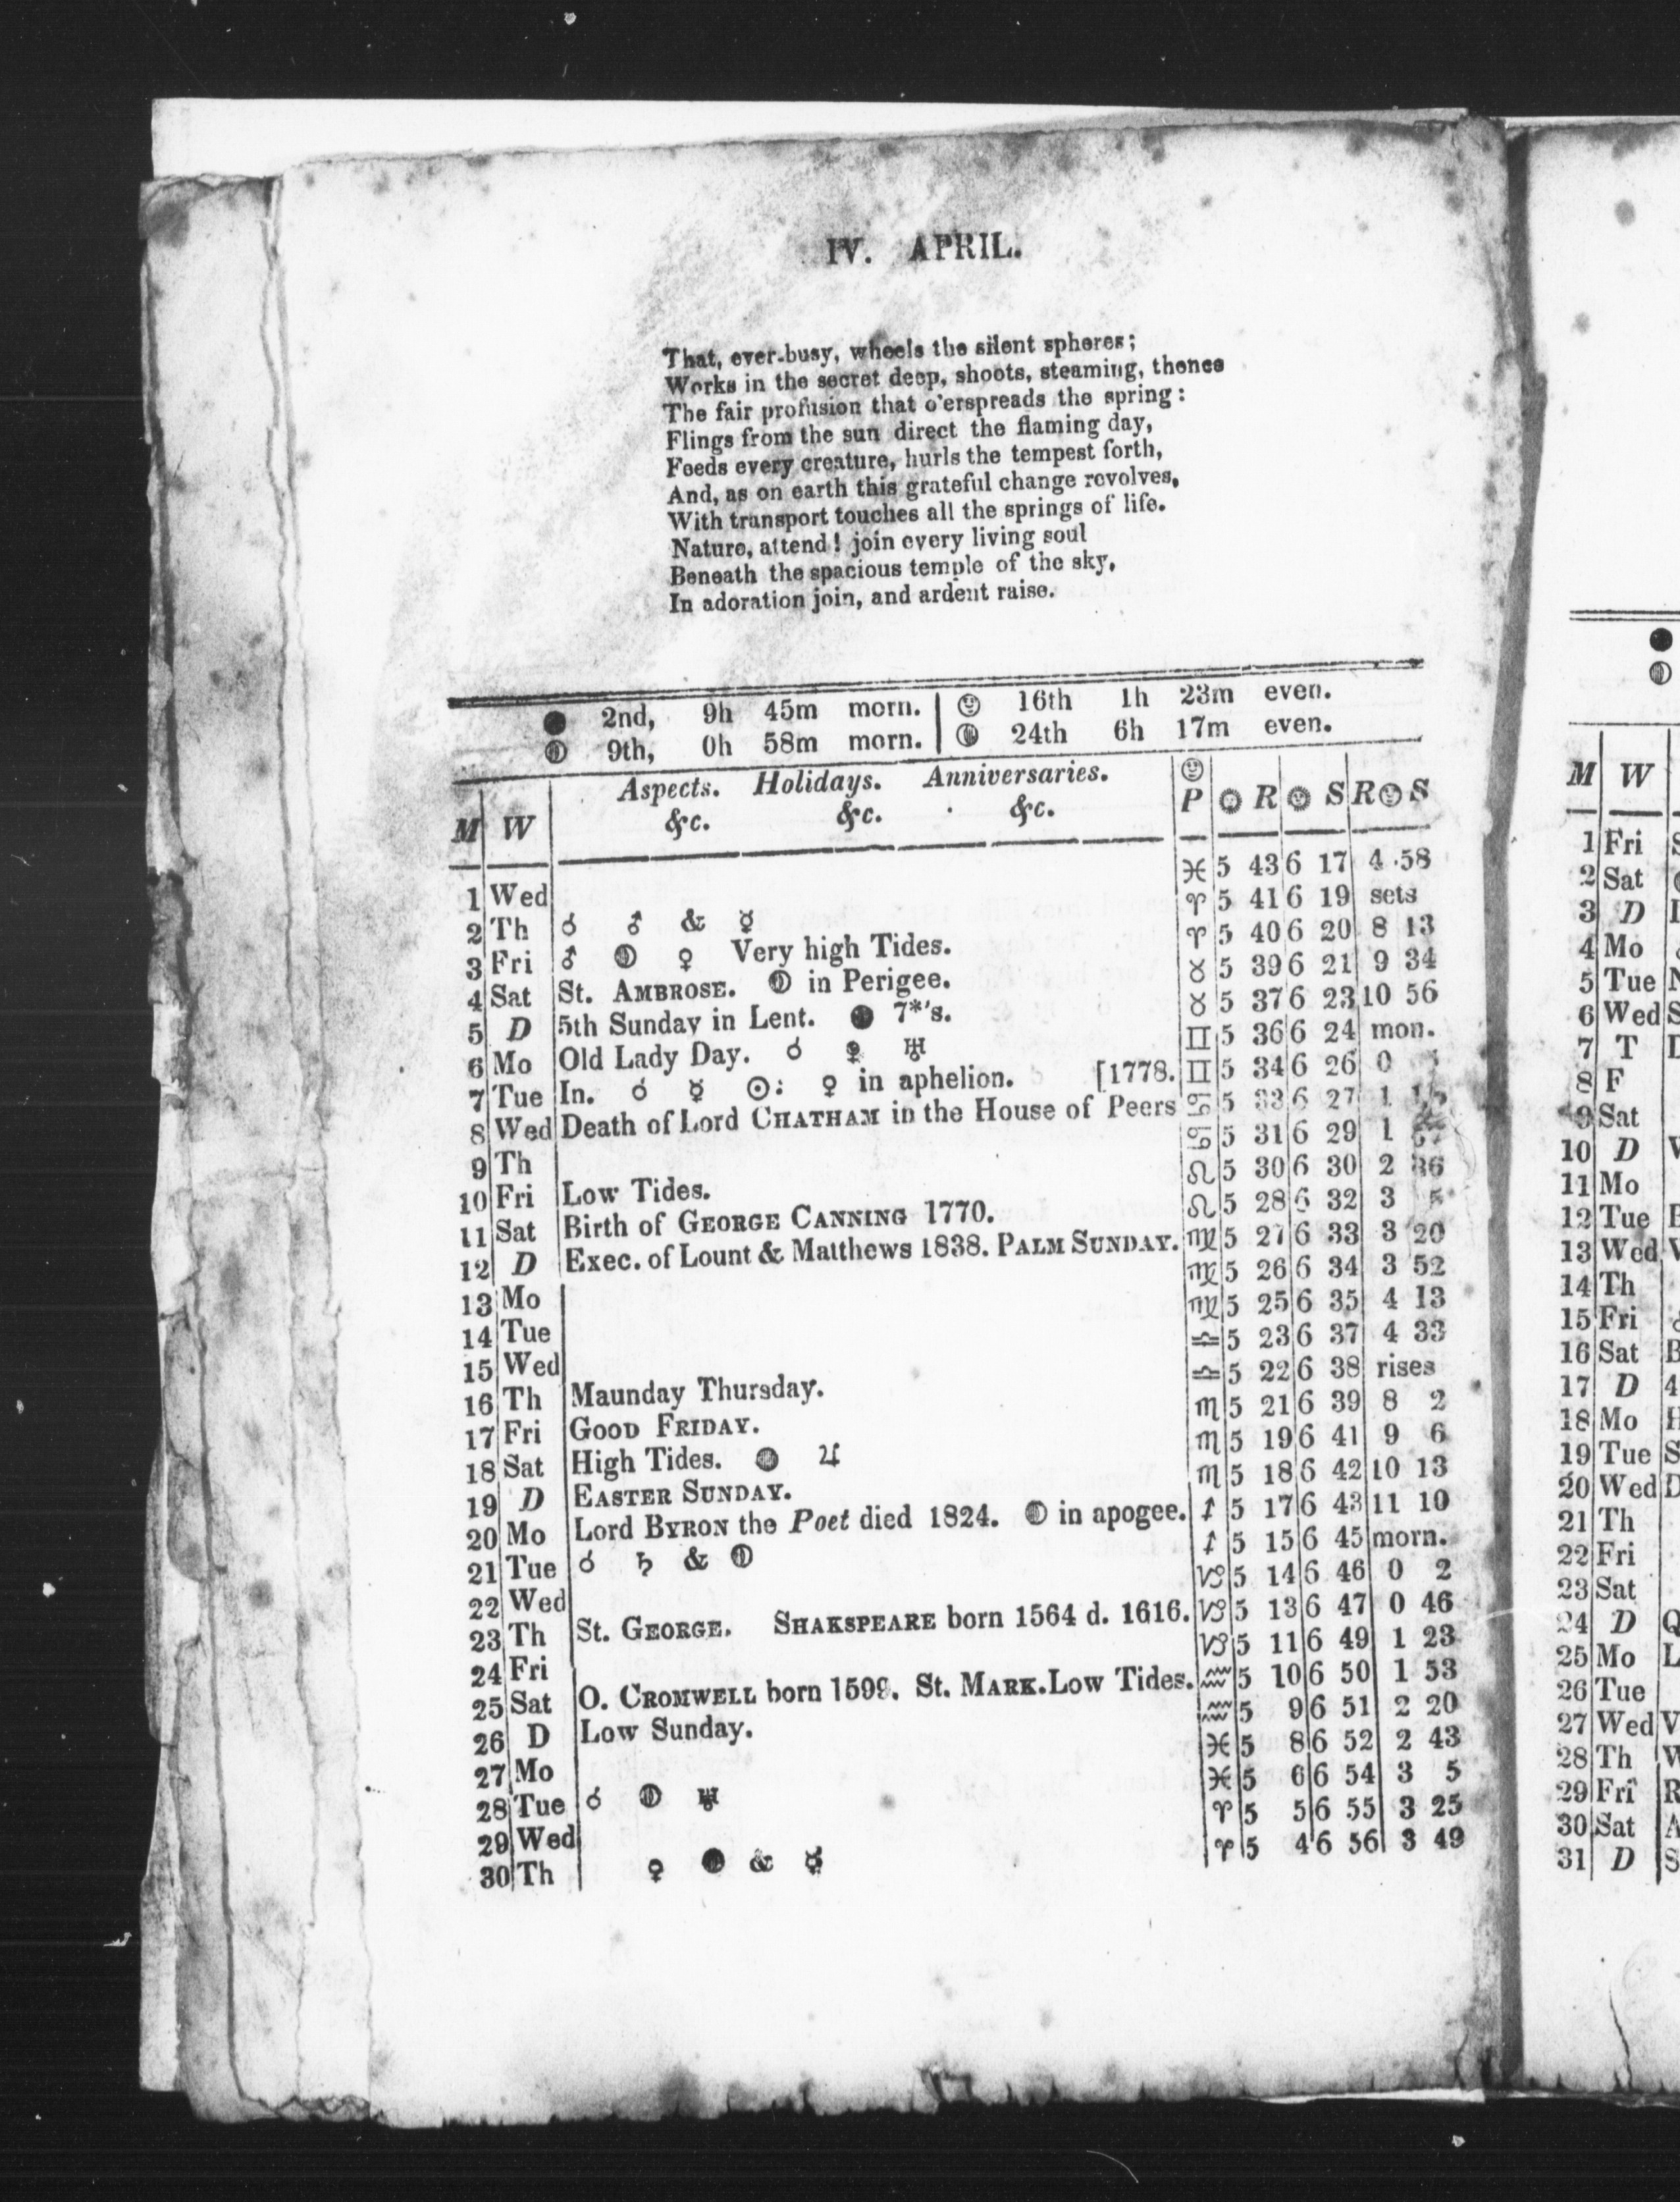 IV. APRIL.
That, ever-busy, wheels the silent spheres;
Works in the secret deep, shoots, steaming, thence
The fair profusion that o'erspreads the spring:
Flings from the sun direct the flaming day,
Feeds every creature, hurls the tempest forth,
And, as on earth this grateful change revolves,
With transport touches all the springs of life.
Nature, attend! join every living soul
Beneath the spacious temple of the sky,
In adoration join, and ardent raise.
● 2nd, 9h 45m morn. | 16th 1h 23m even.
9th, 0h 58m morn. | 24th 6h 17m even.
Aspects. Holidays. Anniversaries.
M W &c. &c. &c. P R S R S
1 Wed ♓ 5 43 6 17 4 58
2 Th ☌ ♂ & ☿ ♈ 5 41 6 19 sets
3 Fri ♂ ♀ Very high Tides. ♈ 5 40 6 20 8 13
4 Sat St. AMBROSE. in Perigee. ♉ 5 39 6 21 9 34
5 D 5th Sunday in Lent. ● 7*'s. ♉ 5 37 6 23 10 56
6 Mo Old Lady Day. ☌ ♀ ♅ ♊ 5 36 6 24 mon.
7 Tue In. ☌ ☿ ☉: ♀ in aphelion. [1778. ♊ 5 34 6 26 0
8 Wed Death of Lord CHATHAM in the House of Peers ♋ 5 33 6 27 1
9 Th ♋ 5 31 6 29 1
10 Fri Low Tides. ♌ 5 30 6 30 2 36
11 Sat Birth of GEORGE CANNING 1770. ♌ 5 28 6 32 3
12 D Exec. of Lount & Matthews 1838. PALM SUNDAY. ♍ 5 27 6 33 3 20
13 Mo ♍ 5 26 6 34 3 52
14 Tue ♍ 5 25 6 35 4 13
15 Wed ♎ 5 23 6 37 4 33
16 Th Maunday Thursday. ♎ 5 22 6 38 rises
17 Fri GOOD FRIDAY. ♏ 5 21 6 39 8 2
18 Sat High Tides. ● ♃ ♏ 5 19 6 41 9 6
19 D EASTER SUNDAY. ♏ 5 18 6 42 10 13
20 Mo Lord BYRON the Poet died 1824. in apogee. ♐ 5 17 6 43 11 10
21 Tue ☌ ♄ & ♐ 5 15 6 45 morn.
22 Wed ♑ 5 14 6 46 0 2
23 Th St. GEORGE. SHAKSPEARE born 1564 d. 1616. ♑ 5 13 6 47 0 46
24 Fri ♑ 5 11 6 49 1 23
25 Sat O. CROMWELL born 1599. St. MARK. Low Tides. ♒ 5 10 6 50 1 53
26 D Low Sunday. ♒ 5 9 6 51 2 20
27 Mo ♓ 5 8 6 52 2 43
28 Tue ☌ ♅ ♓ 5 6 6 54 3 5
29 Wed ♈ 5 5 6 55 3 25
30 Th ♀ ● & ☿ ♈ 5 4 6 56 3 49
M W
1 Fri
2 Sat
3 D
4 Mo
5 Tue
6 Wed
7 T
8 F
9 Sat
10 D
11 Mo
12 Tue
13 Wed
14 Th
15 Fri
16 Sat
17 D 4
18 Mo
19 Tue
20 Wed
21 Th
22 Fri
23 Sat
24 D
25 Mo
26 Tue
27 Wed
28 Th
29 Fri
30 Sat
31 D